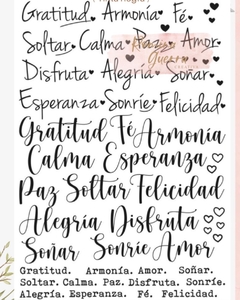 Gratitud Armonía Fé
Soltar Calma Paz Amor
Disfruta Alegría Soñar
Esperanza Sonríe Felicidad
Gratitud Fé Armonía
Calma Esperanza
Paz Soltar Felicidad
Alegría Disfruta
Soñar Sonríe Amor
Gratitud. Armonía. Amor. Soñar.
Soltar. Calma. Paz. Disfruta. Sonríe.
Alegría. Esperanza. Fé. Felicidad.